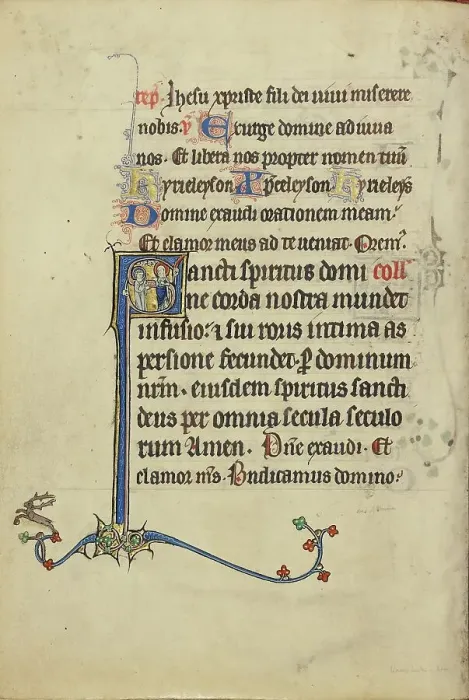 rep. Ihesu xpriste fili dei uiui miserere
nobis. v Exurge domine adiuua
nos. Et libera nos propter nomen tuū
Kyrieleyson Xpēeleyson Kyrieleys
Domine exaudi orationem meam.
Et clamor meus ad te ueniat. Orem.
Sancti spiritus domi coll
ne corda nostra mundet
infusio: ⁊ sui roris intima as
persione fecundet. P dominum
nrm. eiusdem spiritus sancti
deus per omnia secula seculo
rum Amen. Dne exaudi. Et
clamor ms. Bndicamus domino.